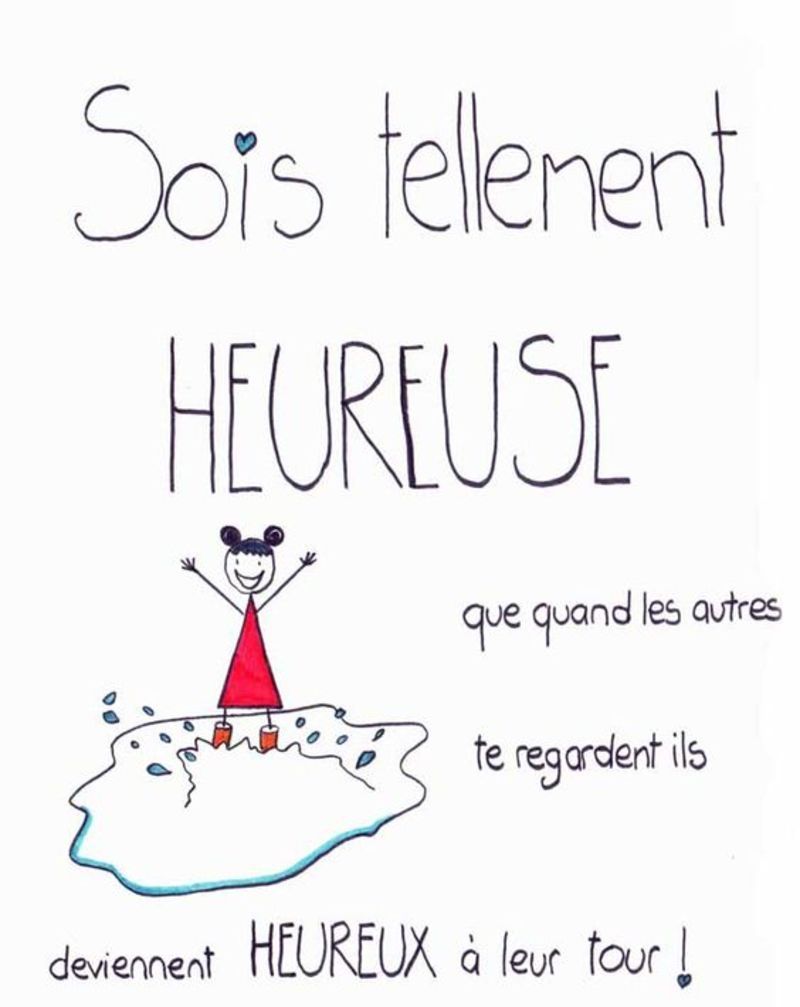 Sois tellement
HEUREUSE
que quand les autres
te regardent ils
deviennent HEUREUX à leur tour !